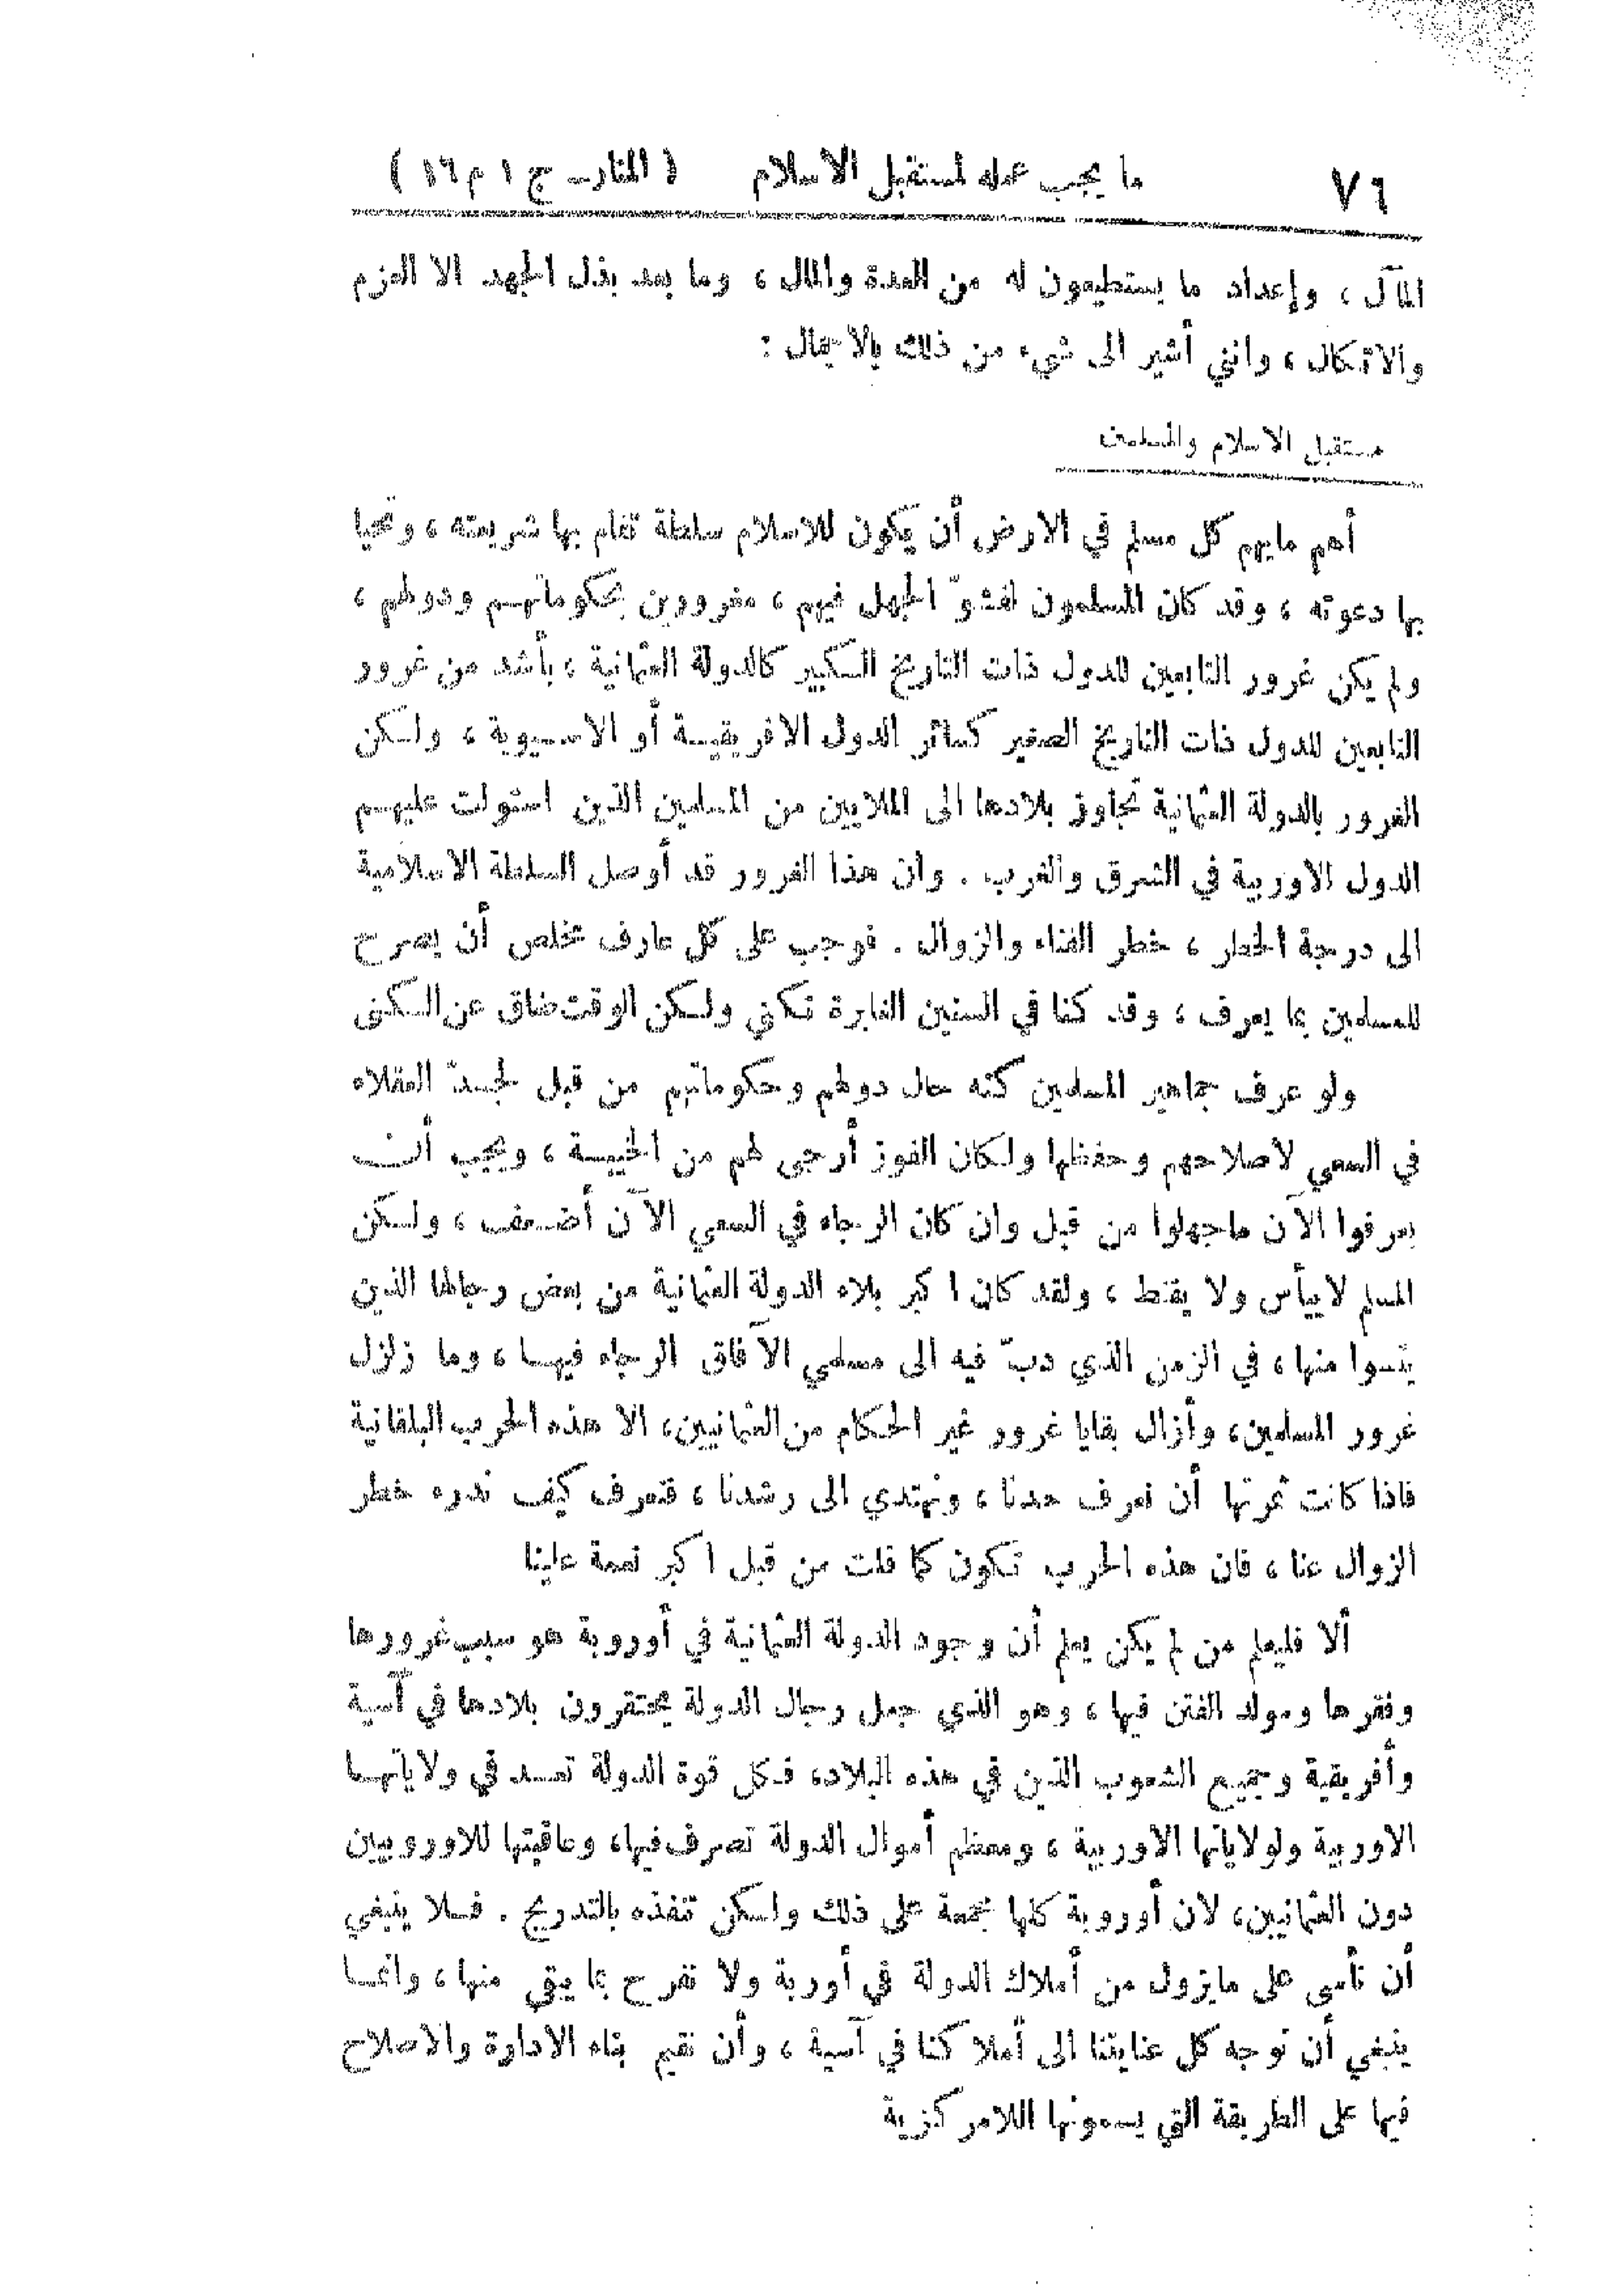 ٧٦ ما يجب عمله لمستقبل الاسلام ( المنار ـ ج ١ م ١٦ )
المآل ، وإعداد ما يستطيعون له من العدة والمال ، وما بعد بذل الجهد الا العزم
والاتكال ، وانني أشير الى شيء من ذلك بالاجمال :
مستقبل الاسلام والمسلمين
أهم مايهم كل مسلم في الارض أن يكون للاسلام سلطة تقام بها شريعته ، وتحيا
بها دعوته ، وقد كان المسلمون لفشوّ الجهل فيهم ، مغرورين بحكوماتهم ودولهم ،
ولم يكن غرور التابعين للدول ذات التاريخ الكبير كالدولة العثمانية ، بأشد من غرور
التابعين للدول ذات التاريخ الصغير كسائر الدول الافريقية أو الاسيوية ، ولكن
الغرور بالدولة العثمانية تجاوز بلادها الى الملايين من المسلمين الذين استولت عليهم
الدول الاوربية في الشرق والغرب . وان هذا الغرور قد أوصل السلطة الاسلامية
الى درجة الخطر ، خطر الفناء والزوال . فوجب على كل عارف مخلص أن يصرح
للمسلمين بما يعرف ، وقد كنا في السنين الغابرة نكني ولكن الوقت ضاق عن الكنى
ولو عرف جماهير المسلمين كنه حال دولهم وحكوماتهم من قبل لجدّ العقلاء
في السعي لاصلاحهم وحفظها ولكان الفوز أرجى لهم من الخيبة ، ويجب أن
يعرفوا الآن ماجهلوا من قبل وان كان الرجاء في السعي الآن أضعف ، ولكن
المسلم لاييأس ولا يقنط ، ولقد كان اكبر بلاء الدولة العثمانية من بعض رجالها الذين
يئسوا منها ، في الزمن الذي دبّ فيه الى مسلمي الآفاق الرجاء فيها ، وما زلزل
غرور المسلمين، وأزال بقايا غرور غير الحكام من العثمانيين، الا هذه الحرب البلقانية
فاذا كانت ثمرتها أن نعرف حدنا ، ونهتدي الى رشدنا ، فنعرف كيف ندرء خطر
الزوال عنا ، فان هذه الحرب تكون كما قلت من قبل اكبر نعمة علينا
ألا فليعلم من لم يكن يعلم أن وجود الدولة العثمانية في أوروبة هو سبب غرورها
وفقرها ومولد الفتن فيها ، وهو الذي جعل رجال الدولة يحتقرون بلادها في آسية
وأفريقية وجميع الشعوب الذين في هذه البلاد، فكل قوة الدولة تعد في ولاياتها
الاوربية ولولاياتها الاوربية ، ومعظم أموال الدولة تصرف فيها، وعاقبتها للاوروبيين
دون العثمانيين، لان أوروبة كلها مجمعة على ذلك ولكن تنفذه بالتدريج . فلا ينبغي
أن نأسى على مايزول من أملاك الدولة في أوربة ولا نفرح بما يبقى منها ، وانما
ينبغي أن نوجه كل عنايتنا الى أملاكنا في آسية ، وأن نقيم بناء الادارة والاصلاح
فيها على الطريقة التي يسمونها اللامركزية